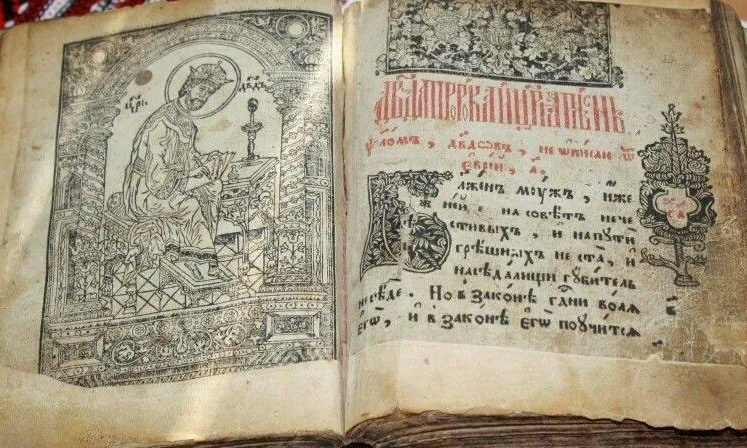 цр҃ь дв҃дъ
Дв҃да пророка и цр҃ѧ пѣснь
ѱаломъ, дв҃довъ, не ѡписанъ ѿ
еврей, а҃.
Блженъ моужъ, иже
не иде на совѣтъ нече
стивыхъ, и на пути
грѣшныхъ не ста, и
на сѣдалищи губитель
не сѣде. Но в законѣ гдⷭ҇ни волѧ
егѡ, и в законѣ егѡ поучитсѧ